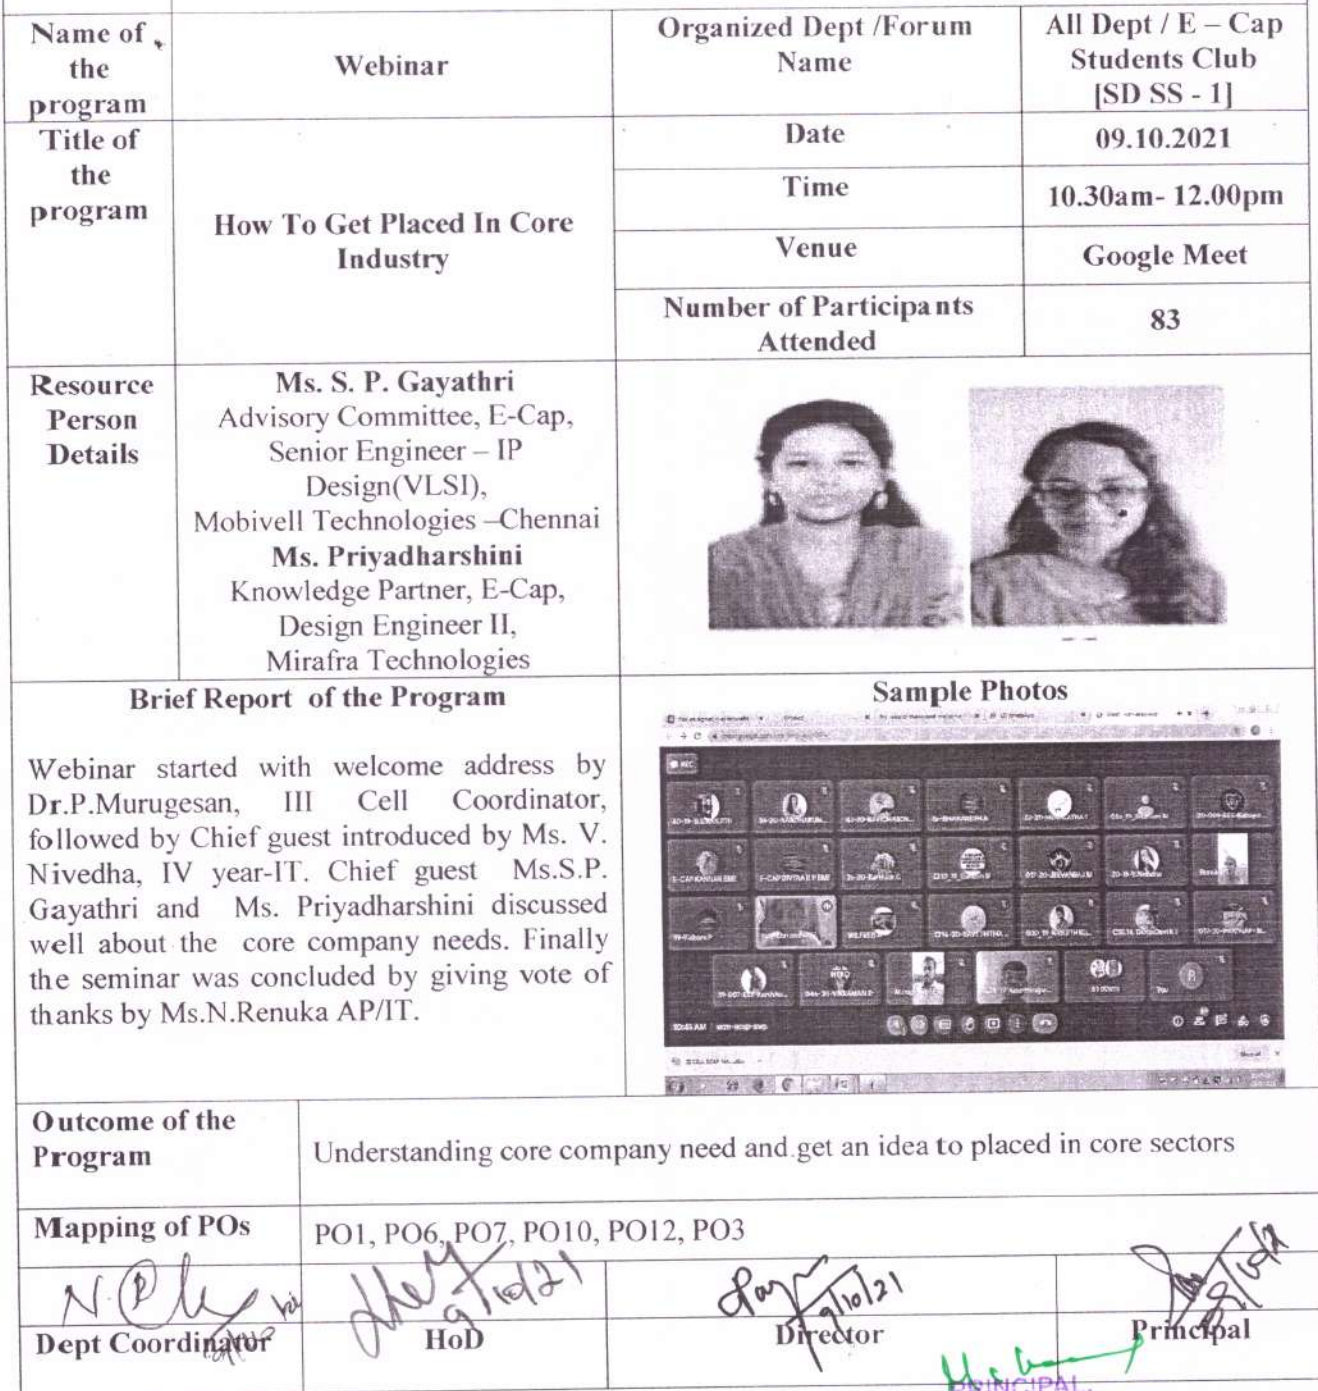 Name of
the
program
Webinar
Organized Dept /Forum
Name
All Dept / E – Cap
Students Club
[SD SS - 1]
Title of
the
program
How To Get Placed In Core
Industry
Date
09.10.2021
Time
10.30am- 12.00pm
Venue
Google Meet
Number of Participants
Attended
83
Resource
Person
Details
Ms. S. P. Gayathri
Advisory Committee, E-Cap,
Senior Engineer – IP
Design(VLSI),
Mobivell Technologies –Chennai
Ms. Priyadharshini
Knowledge Partner, E-Cap,
Design Engineer II,
Mirafra Technologies
Brief Report of the Program
Webinar started with welcome address by
Dr.P.Murugesan, III Cell Coordinator,
followed by Chief guest introduced by Ms. V.
Nivedha, IV year-IT. Chief guest Ms.S.P.
Gayathri and Ms. Priyadharshini discussed
well about the core company needs. Finally
the seminar was concluded by giving vote of
thanks by Ms.N.Renuka AP/IT.
Sample Photos
REC
E-CAP KANNAN EME
E-CAP DIVYAA R P EME
You
10:45 AM
Outcome of the
Program
Understanding core company need and get an idea to placed in core sectors
Mapping of POs
PO1, PO6, PO7, PO10, PO12, PO3
9/10/21
9/10/21
Dept Coordinator
HoD
Director
Principal
PRINCIPAL,